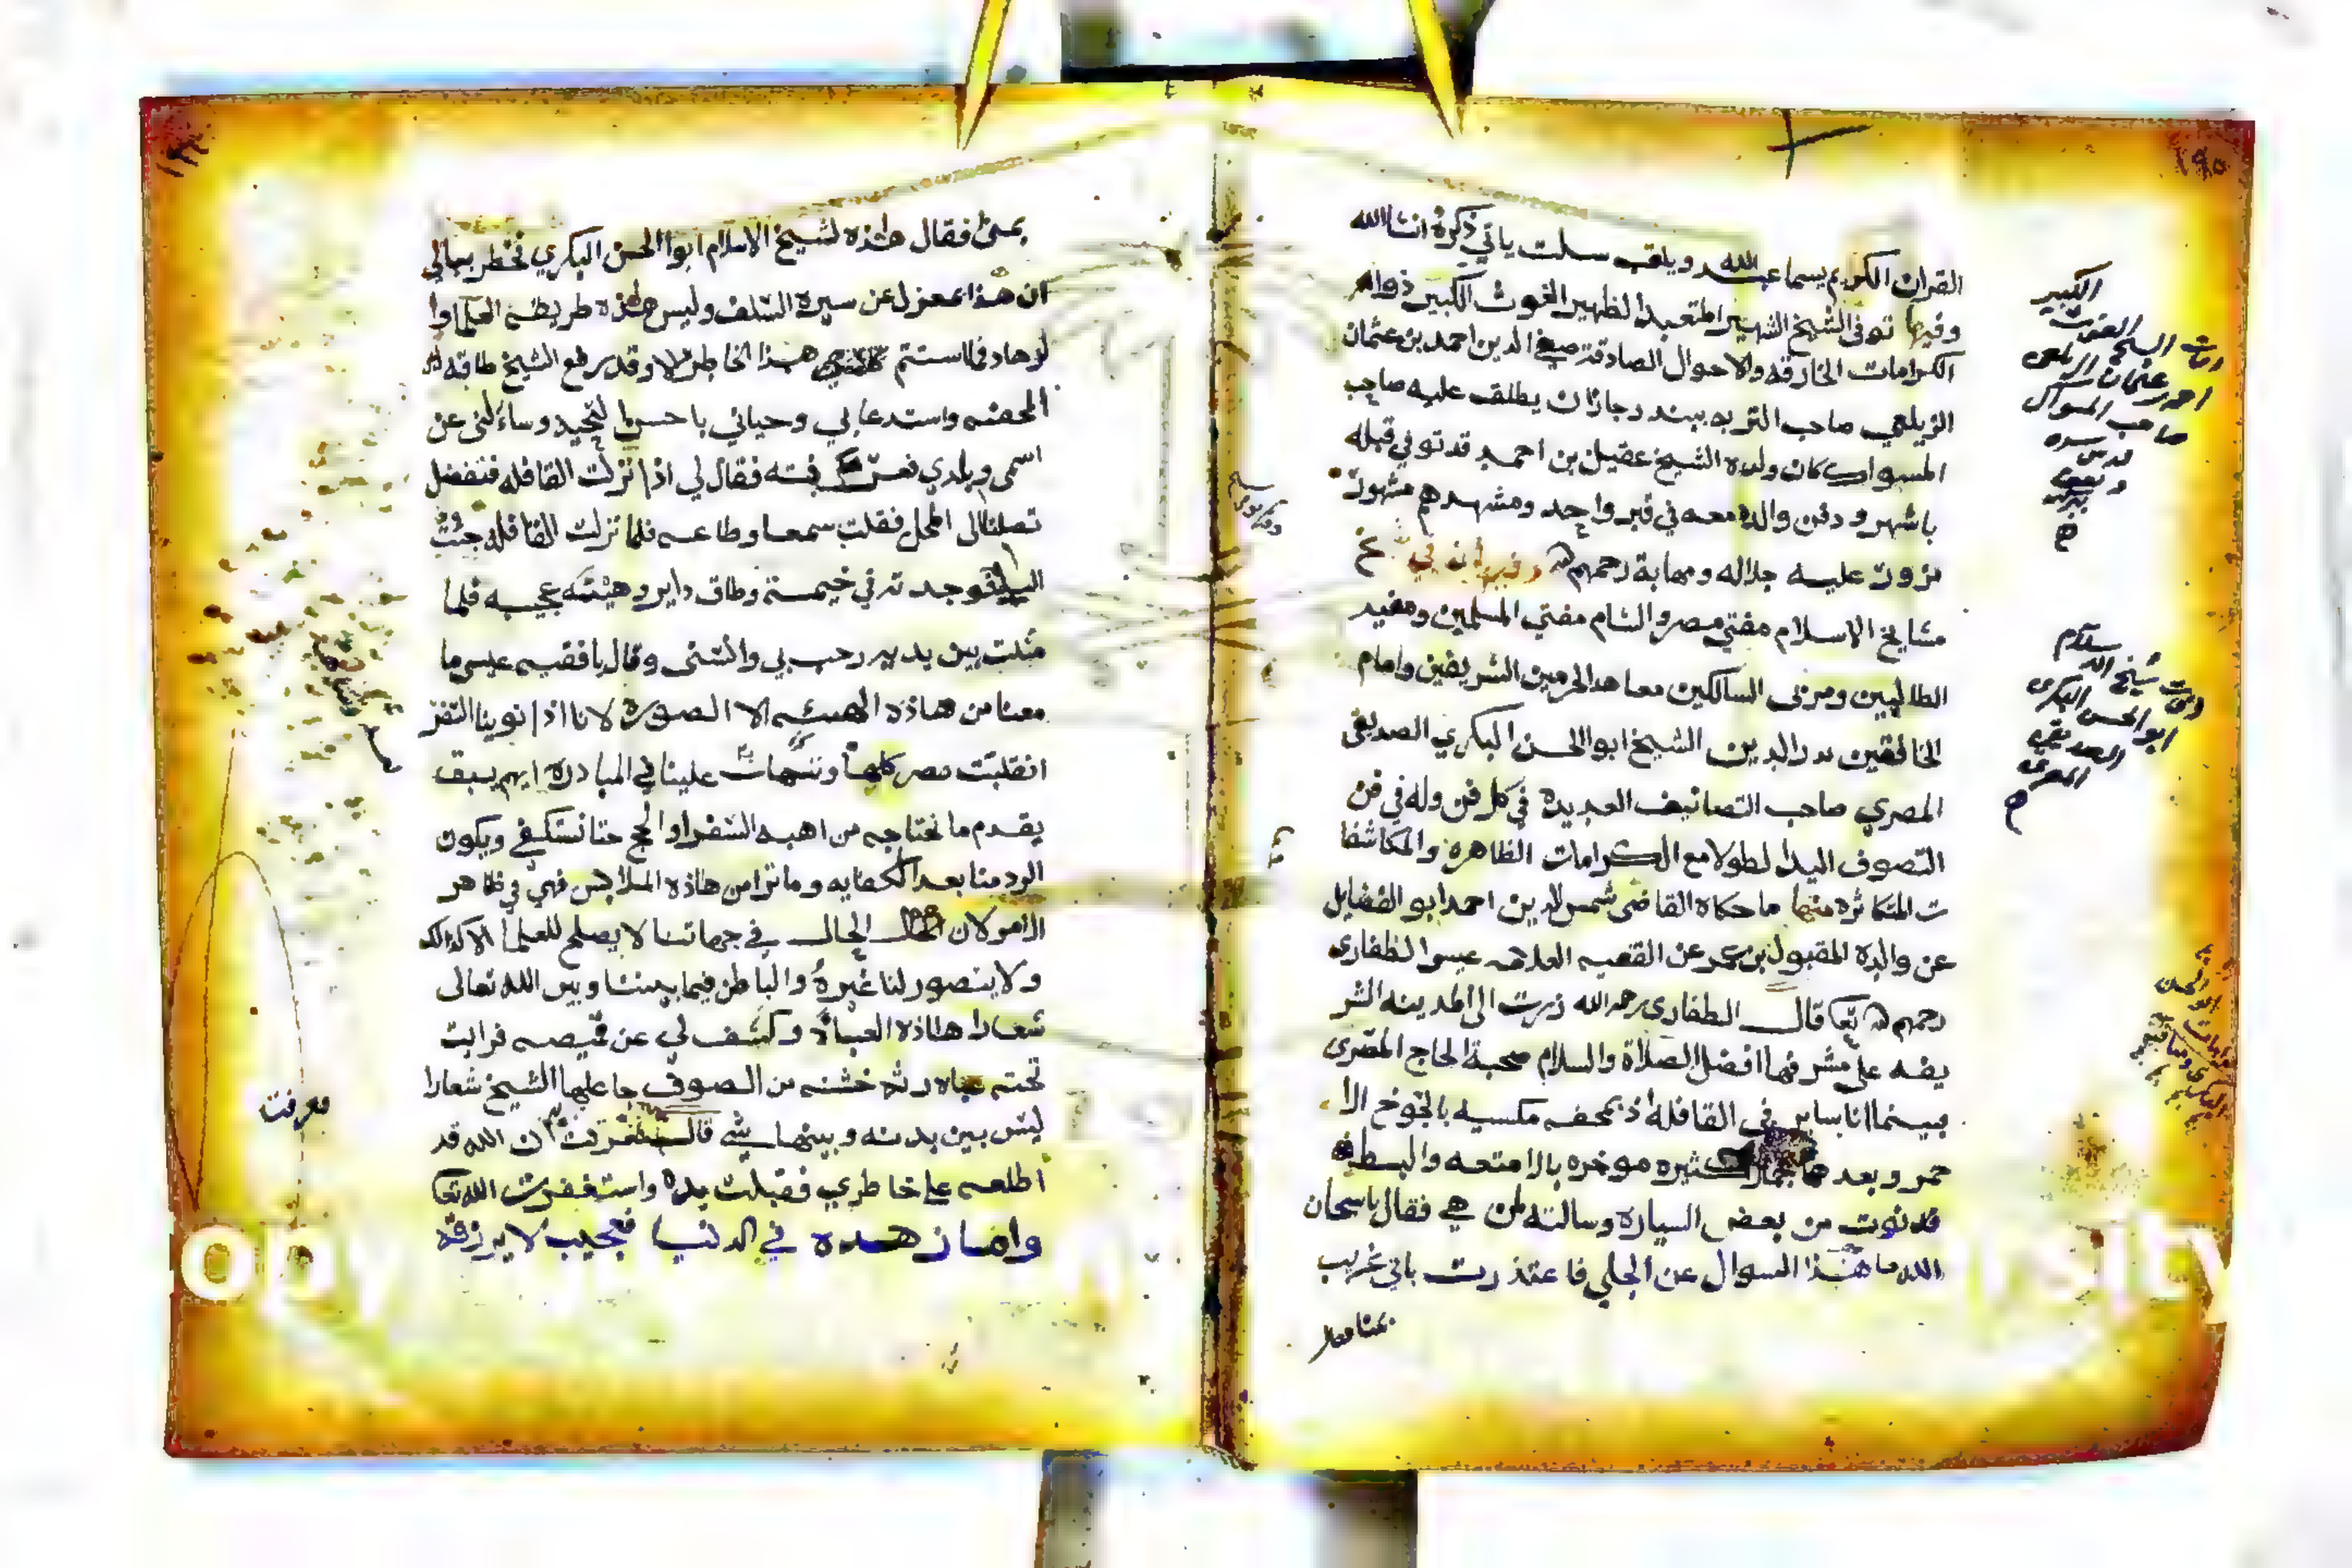 ١٩٥
القران الكريم يسما عبد الله ويلقب سلت ياتي ذكرة انشا الله
وفيها توفى الشيخ الشهير المتعبد الظهير الغوث الكبير ذواله
الكرامات الخارقه والاحوال الصادقة صفي الدين احمد بن عثمان
الزيلعي صاحب التربه ببندر جازان يطلق عليه صاحب
المسواك كان ولده الشيخ عقيل بن احمد قد توفي قبله
باشهر ودفن والده معه في قبر واحد ومشهدهم مشهور
مزور عليه جلاله ومهابة رحمهم الله وفيها توفي شيخ
مشايخ الاسلام مفتي مصر والشام مفتي المسلمين ومفيد
الطالبين ومربي السالكين معاهد الحرمين الشريفين وامام
الخافقين بدر الدين الشيخ ابوالحسن البكري الصديقي
المصري صاحب التصانيف العديدة في كل فن وله في فن
التصوف اليد الطولا مع الكرامات الظاهرة والمكاشفا
ت المتكاثرة منها ما حكاه القاضي شمس الدين احمد ابو الفضايل
عن والده المقبول بن عمر عن الفقيه العلامه عيسى الظفاري
رحمهم الله تعا قال الظفاري رحمه الله زرت الى المدينه الشر
يفه على مشرفها افضل الصلاة والسلام صحبة الحاج المصري
بينما انا ساير في القافلة اذ بمحفه مكسيه بالجوخ الا
حمر وبعدها جمال كثيره موخره بالامتعه والبسط
فدنوت من بعض السيارة وسالته لمن هي فقال ياسبحان
الله ما هذا السوال عن الجلي فاعتذرت باني غريب
يمنى فقال
الكبير
وفات الشيخ الغوث
احمد عثمان الزيلعي
صاحب المسواك
قدس سره
ونفع
به
وفات شيخ الاسلام
ابو الحسن البكري
الصديقي
المصري
يمنى فقال هاذه لشيخ الاسلام ابوالحسن البكري فخطر ببالي
ان هذا بمعزل عن سيرة السلف وليس هاذه طريقة العلماوا
لزهاد فلا استتم هذا الخاطر الا وقد رفع الشيخ طاقه
المحفه واستدعا بي وحياني باحسن التحيه وساءلنى عن
اسمى وبلدي فعرفته فقال لي اذا نزلت القافله فتفضل
تصلنا الى المحل فقلت سمعا وطاعه فلما نزلت القافله جئت
اليه فوجدته في خيمة وطاق داير وهيئته عجيبه فلما
مثلت بين يديه رحب بي وانشنى وقال يافقيه عيسى ما
معنا من هاذه الهيئه الا الصوره لانا اذا نوينا السفر
انقلبت مصر كلها وتهافت علينا في المبادرة ايهم يسبق
يقدم ما نحتاجه من اهبه السفر او الحج حتا نستكفي ويكون
الرد منا بعد الكفايه وما ترا من هاذه الملابس فهي في ظاهر
الامر لان الحال في جهاتنا لا يصلح للعلما الا كذالك
ولا يتصور لنا غيره والباطن فيما بيننا وبين الله تعالى
شعارا هاذه العباة وكشف لي عن قميصه فرايت
تحته عباه رثه خشنه من الصوف جاعلها الشيخ شعارا
ليس بين بدنه وبينها شي قال فعرفت ان الله قد
اطلعه على خاطري فقبلت يده واستغفرت الله تعا
واما زهده في الدنيا فعجيب لا يرزقه
معرفت